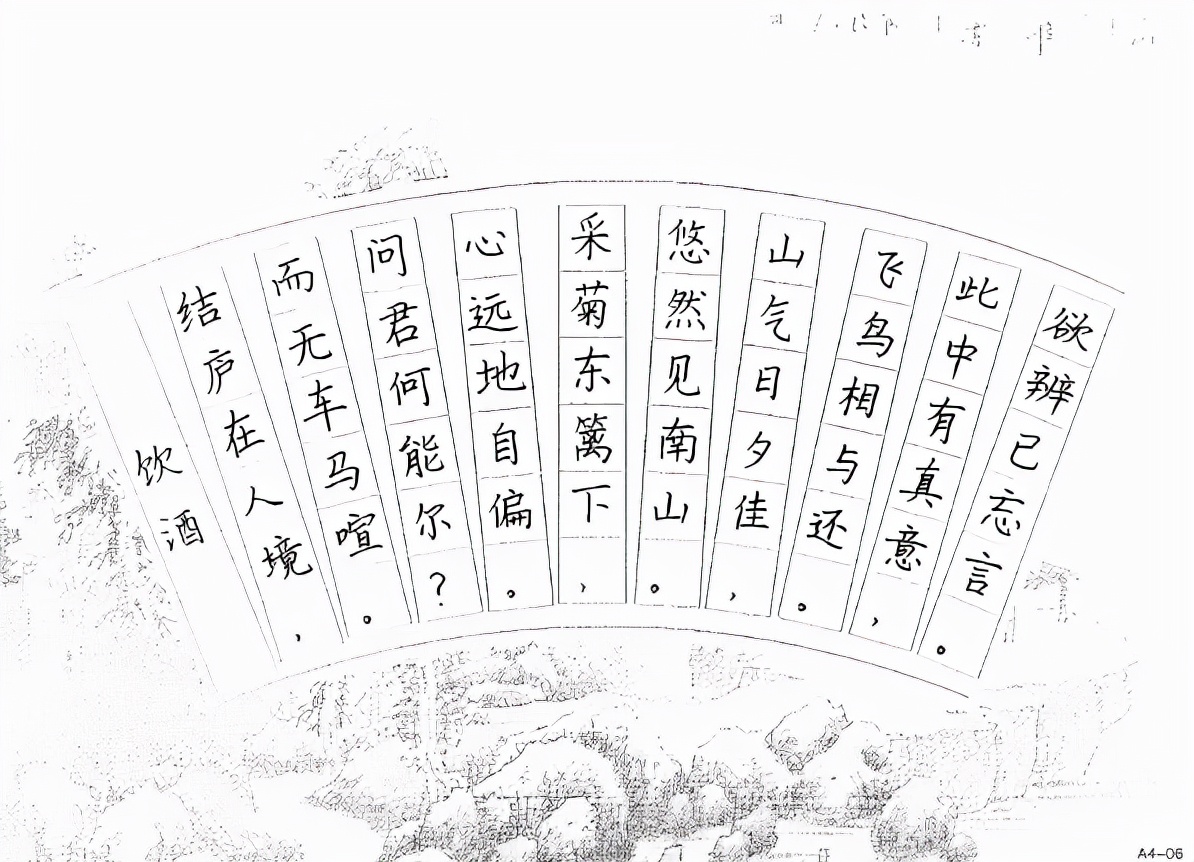 饮酒
结庐在人境，
而无车马喧。
问君何能尔？
心远地自偏。
采菊东篱下，
悠然见南山。
山气日夕佳，
飞鸟相与还。
此中有真意，
欲辨已忘言。
A4-06